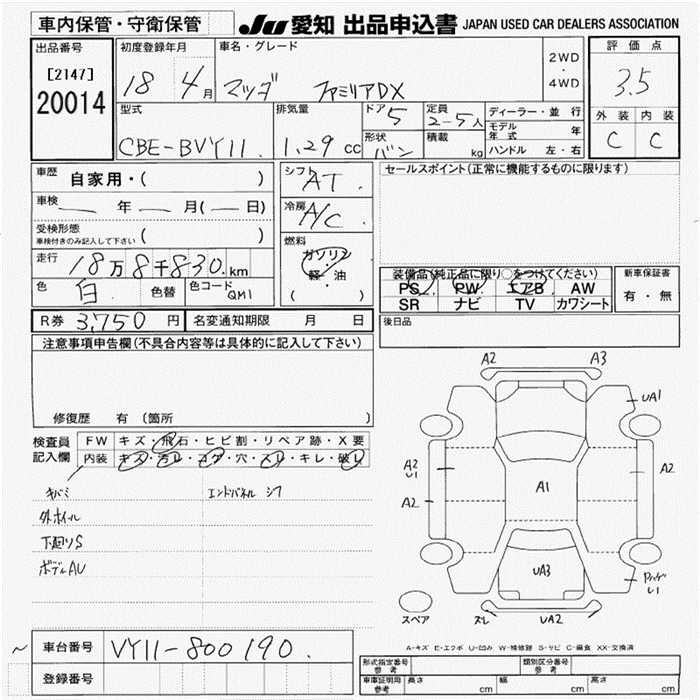 車内保管・守衛保管
JU 愛知 出品申込書 JAPAN USED CAR DEALERS ASSOCIATION
出品番号
[2147]
20014
初度登録年月
18 4月
車名・グレード
マツダ ファミリアDX
2WD
・
4WD
評価点
3.5
外装 内装
C C
型式
CBE-BVY11
排気量
1.29 cc
ドア 5
形状 バン
定員 2-5人
積載 kg
ディーラー・並行
モデル年式 年
ハンドル 左・右
車歴 自家用・( )
車検 年 月( 日)
受検形態
車検付きのみ記入して下さい ( )
走行 18万8千830km
色 白 色替
色コード QM1
シフト AT
冷房 A/C
燃料
ガソリン
軽・油
( )
セールスポイント(正常に機能するものに限ります)
装備品(純正品に限り○をつけてください)
PS PW エアB AW
SR ナビ TV カワシート
新車保証書
有・無
後日品
R券 3,750円 名変通知期限 月 日
注意事項申告欄(不具合内容等は具体的に記入して下さい)
修復歴 有 (箇所 )
検査員
記入欄
FW キズ・飛石・ヒビ割・リペア跡・X要
内装 キズ・汚レ・コゲ・穴・スレ・キレ・破レ
キバミ エンドパネル シフ
外ホイール
下廻りS
ボデーAU
A2 A3
UA1
A2
U1
A2
A1
A2
UA3
バックドア
U1
スペア
ズレ UA2
A-キズ E-エクボ U-凹み W-補修跡 S-サビ C-腐食 XX-交換済
~ 車台番号 VY11-800190
登録番号
形式指定番号
参考
類別区分番号
参考
車庫証明用
参考
長さ cm 幅 cm 高さ cm